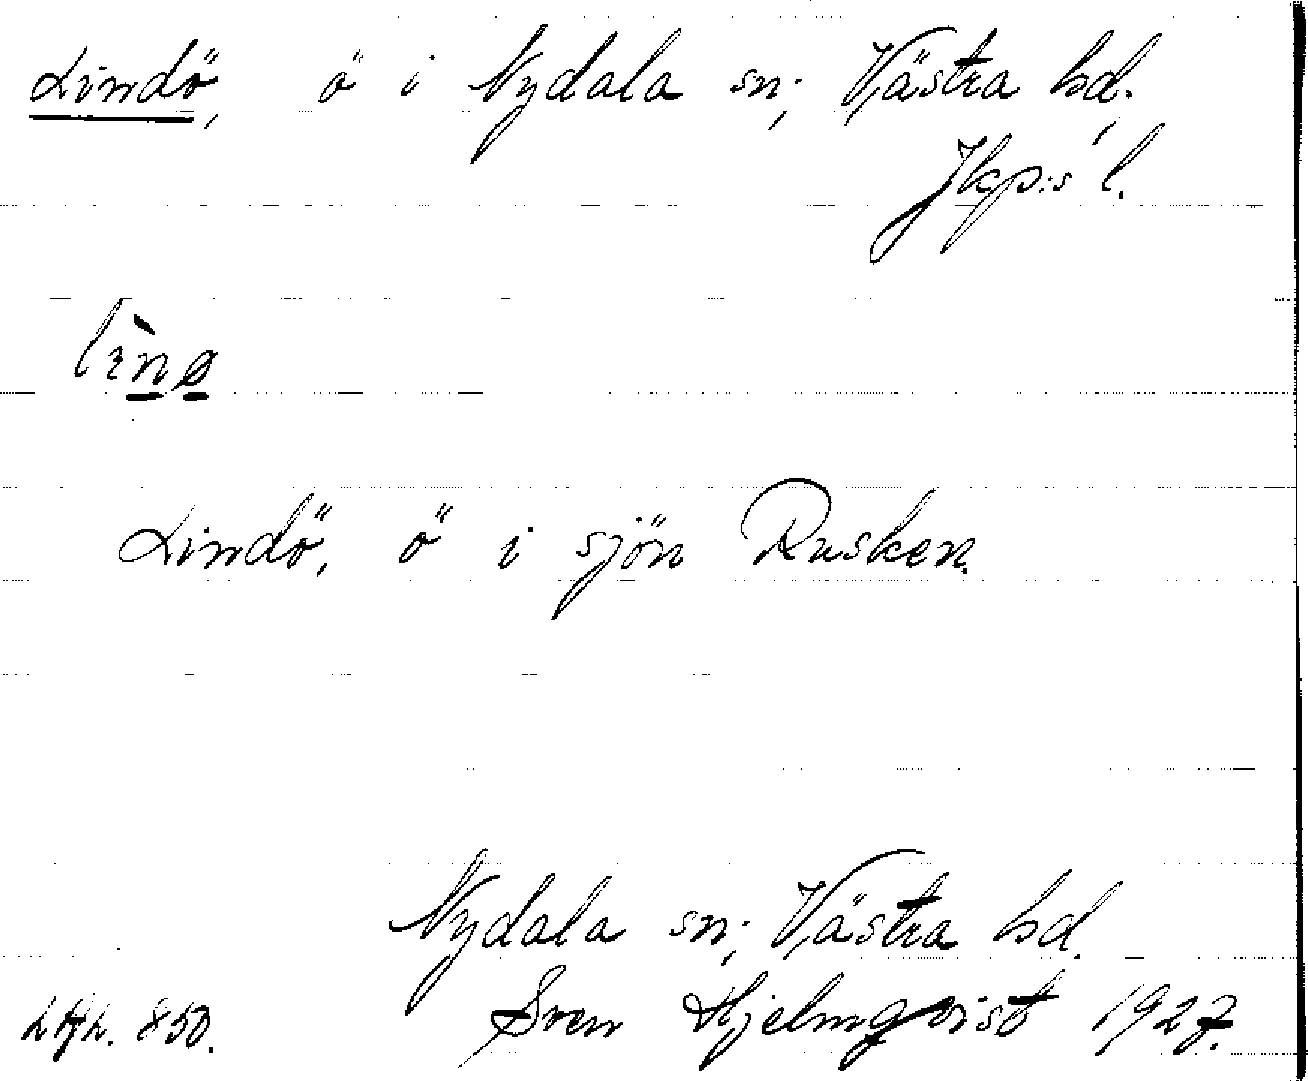 Lindö, ö i Nydala sn; Västra hd.,
Jkp:s l.
lìnø
Lindö, ö i sjön Rusken.
Nydala sn; Västra hd.
850. Sven Hjelmqvist 1927.